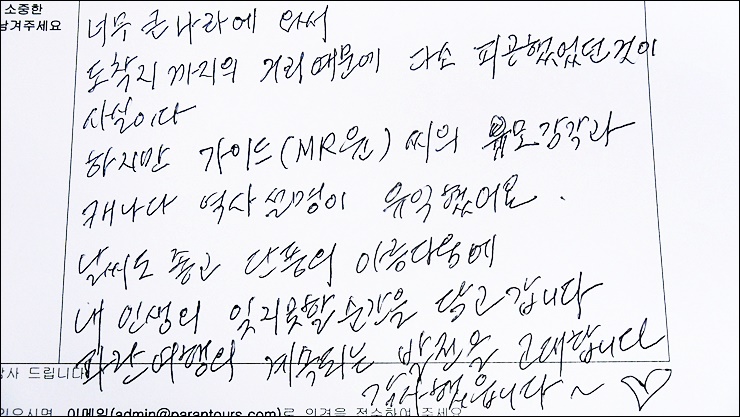 소중한
남겨주세요
너무 큰 나라에 와서
도착지까지의 거리때문에 다소 피곤했었던것이
사실이다
하지만 가이드(MR원)씨의 유모감각과
캐나다 역사 설명이 유익했어요.
날씨도 좋고 단풍의 아름다움에
내 인생의 잊지못할순간을 담고 갑니다
파란여행의 계속되는 발전을 고대합니다
감사했읍니다~♡
감사 드립니다
있으시면, 이메일(admin@parantours.com)로 의견을 접수하여 주세요